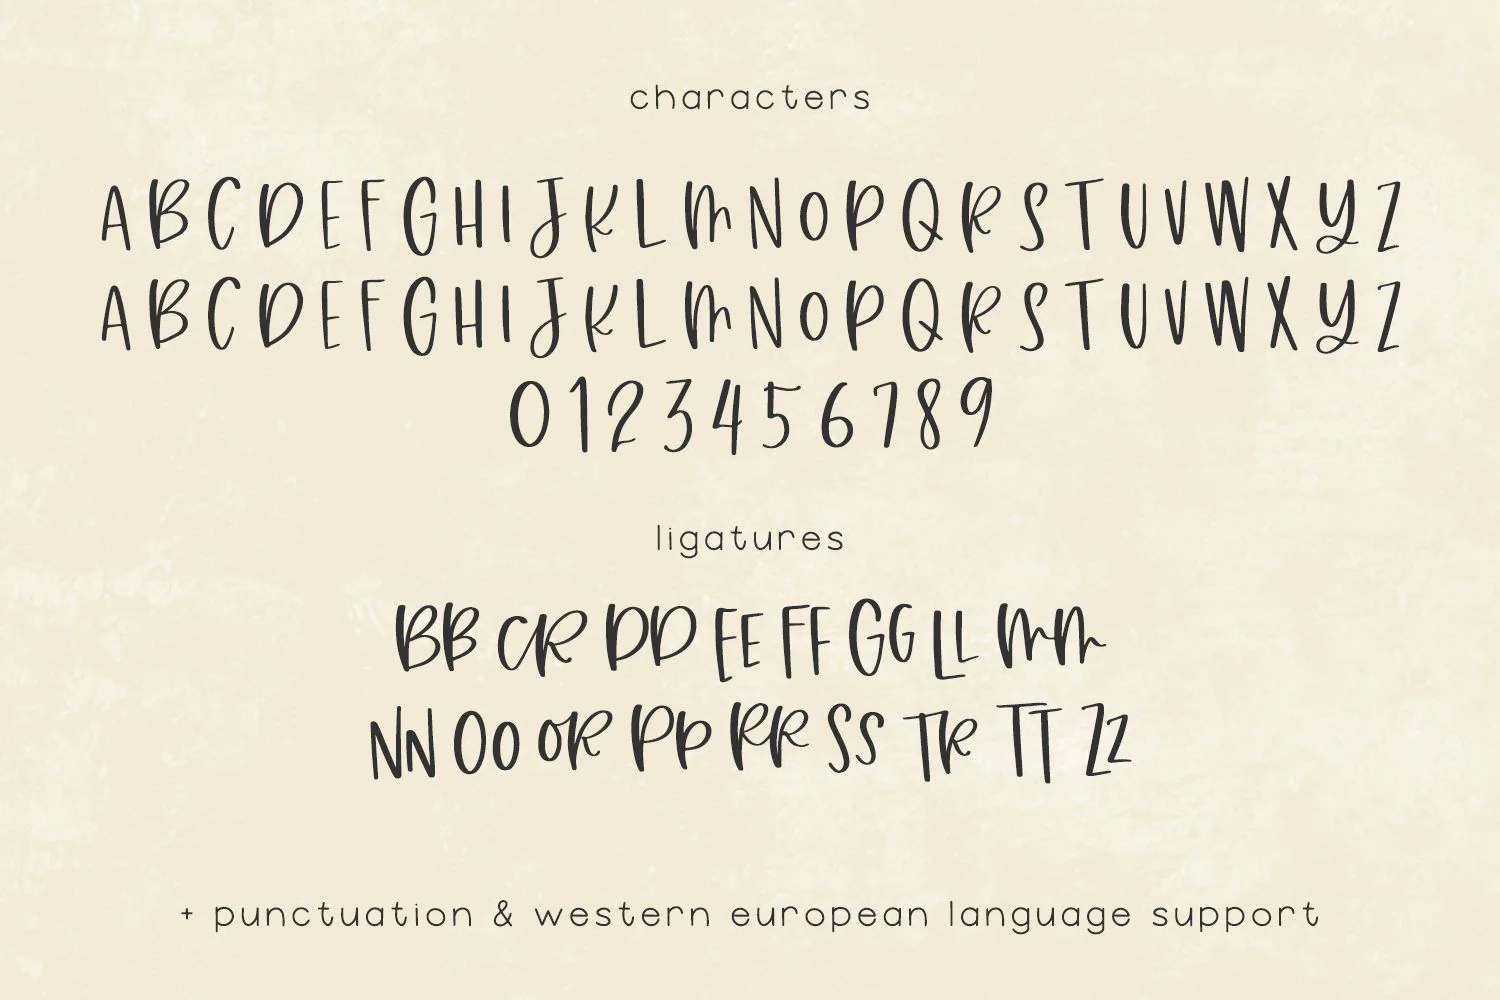 characters
A B C D E F G H I J K L M N O P Q R S T U V W X Y Z
A B C D E F G H I J K L M N O P Q R S T U V W X Y Z
0 1 2 3 4 5 6 7 8 9
ligatures
BB CR DD EE FF GG LL MM
NN OO OR PP RR SS TR TT ZZ
+ punctuation & western european language support